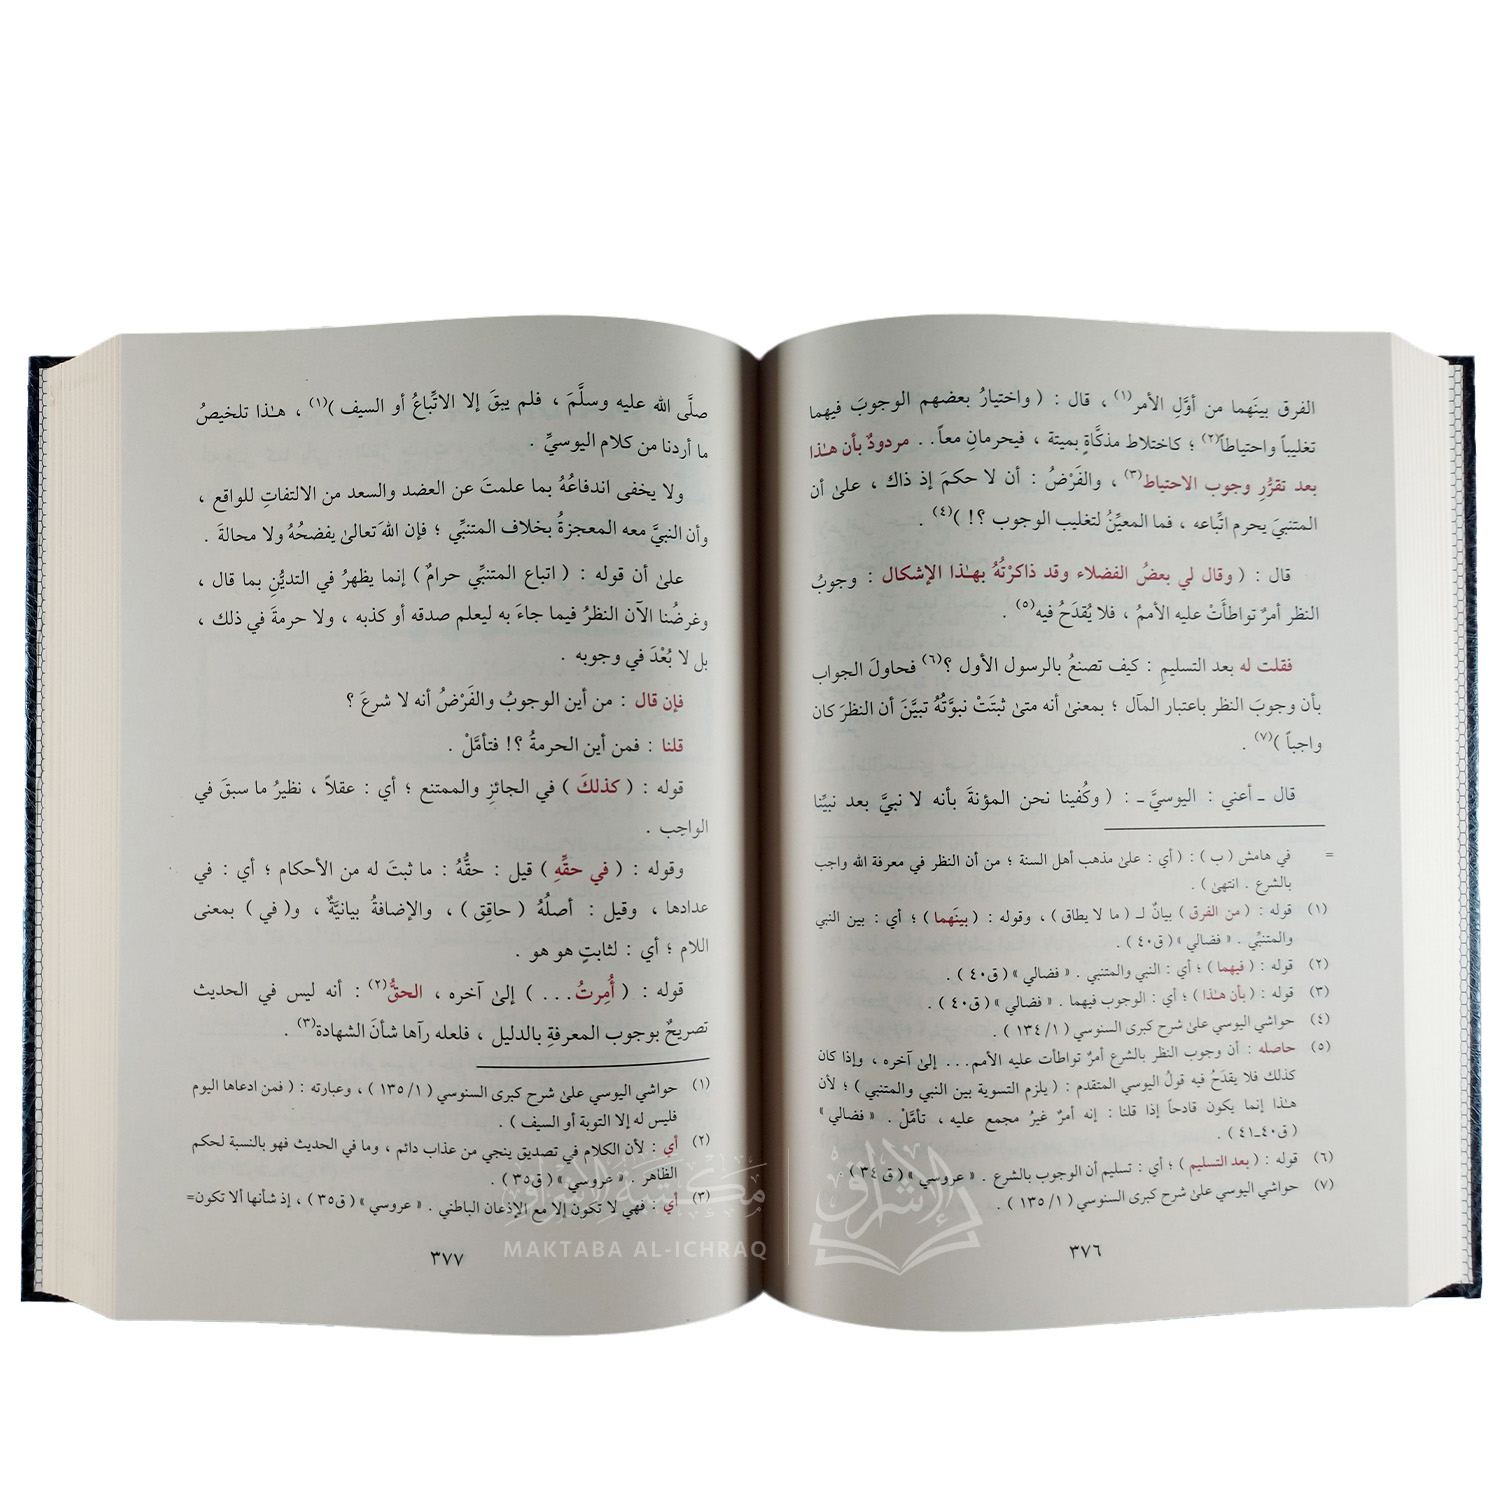 الفرق بينَهما من أوَّلِ الأمر(١) ، قال : ( واختيارُ بعضهم الوجوبَ فيهما
تغليباً واحتياطاً(٢) ؛ كاختلاط مذكَّاةٍ بميتة ، فيحرمانِ معاً . . مردودٌ بأن هـٰذا
بعد تقرُّرِ وجوب الاحتياط(٣) ، والفَرْضُ : أن لا حكمَ إذ ذاك ، علىٰ أن
المتنبيَ يحرم اتِّباعه ، فما المعيِّنُ لتغليب الوجوب ؟! )(٤) .
قال : ( وقال لي بعضُ الفضلاء وقد ذاكرْتُهُ بهـٰذا الإشكال : وجوبُ
النظر أمرٌ تواطأَتْ عليه الأممُ ، فلا يُقدَحُ فيه(٥) .
فقلت له بعد التسليم : كيف تصنعُ بالرسول الأول ؟(٦) فحاولَ الجواب
بأن وجوبَ النظر باعتبار المآل ؛ بمعنىٰ أنه متىٰ ثبتَتْ نبوَّتُهُ تبيَّنَ أن النظرَ كان
واجباً )(٧) .
قال ـ أعني : اليوسيَّ ـ : ( وكُفينا نحن المؤنةَ بأنه لا نبيَّ بعد نبيِّنا
= في هامش ( ب ) : ( أي : علىٰ مذهب أهل السنة ؛ من أن النظر في معرفة الله واجب
بالشرع . انتهىٰ ) .
(١) قوله : ( من الفرق ) بيانٌ لـ ( ما لا يطاق ) ، وقوله : ( بينَهما ) ؛ أي : بين النبي
والمتنبِّي . « فضالي » ( ق٤٠ ) .
(٢) قوله : ( فيهما ) ؛ أي : النبي والمتنبي . « فضالي » ( ق٤٠ ) .
(٣) قوله : ( بأن هـٰذا ) ؛ أي : الوجوب فيهما . « فضالي » ( ق٤٠ ) .
(٤) حواشي اليوسي علىٰ شرح كبرى السنوسي ( ١/ ١٣٤ ) .
(٥) حاصله : أن وجوب النظر بالشرع أمرٌ تواطأت عليه الأمم . . . إلىٰ آخره ، وإذا كان
كذلك فلا يقدَحُ فيه قولُ اليوسي المتقدم : ( يلزم التسوية بين النبي والمتنبي ) ؛ لأن
هـٰذا إنما يكون قادحاً إذا قلنا : إنه أمرٌ غيرُ مجمع عليه ، تأمَّلْ . « فضالي »
( ق٤٠ـ٤١ ) .
(٦) قوله : ( بعد التسليم ) ؛ أي : تسليم أن الوجوب بالشرع . « عروسي » ( ق٣٤ ) .
(٧) حواشي اليوسي علىٰ شرح كبرى السنوسي ( ١/ ١٣٥ ) .
٣٧٦
صلَّى الله عليه وسلَّمَ ، فلم يبقَ إلا الاتِّباعُ أو السيف )(١) ، هـٰذا تلخيصُ
ما أردنا من كلام اليوسيِّ .
ولا يخفى اندفاعُهُ بما علمتَ عن العضد والسعد من الالتفاتِ للواقع ،
وأن النبيَّ معه المعجزةُ بخلاف المتنبِّي ؛ فإن اللهَ تعالىٰ يفضحُهُ ولا محالةَ .
علىٰ أن قوله : ( اتباع المتنبِّي حرامٌ ) إنما يظهرُ في التديُّنِ بما قال ،
وغرضُنا الآن النظرُ فيما جاءَ به ليعلم صدقه أو كذبه ، ولا حرمةَ في ذلك ،
بل لا بُعْدَ في وجوبه .
فإن قال : من أين الوجوبُ والفَرْضُ أنه لا شرعَ ؟
قلنا : فمن أين الحرمةُ ؟! فتأمَّلْ .
قوله : ( كذلكَ ) في الجائزِ والممتنع ؛ أي : عقلاً ، نظيرُ ما سبقَ في
الواجب .
وقوله : ( في حقِّهِ ) قيل : حقُّهُ : ما ثبتَ له من الأحكام ؛ أي : في
عدادها ، وقيل : أصلُهُ ( حاقِق ) ، والإضافةُ بيانيَّةٌ ، و( في ) بمعنى
اللام ؛ أي : لثابتٍ هو هو .
قوله : ( أُمِرتُ . . . ) إلىٰ آخره ، الحقُّ(٢) : أنه ليس في الحديث
تصريحٌ بوجوب المعرفةِ بالدليل ، فلعله رآها شأنَ الشهادة(٣) .
(١) حواشي اليوسي علىٰ شرح كبرى السنوسي ( ١/ ١٣٥ ) ، وعبارته : ( فمن ادعاها اليوم
فليس له إلا التوبة أو السيف ) .
(٢) أي : لأن الكلام في تصديق ينجي من عذاب دائم ، وما في الحديث فهو بالنسبة لحكم
الظاهر . « عروسي » ( ق٣٥ ) .
(٣) أي : فهي لا تكون إلا مع الإذعان الباطني . « عروسي » ( ق٣٥ ) ، إذ شأنها ألا تكون=
٣٧٧
مكتبة الإشراق
MAKTABA AL-ICHRAQ
الإشراق